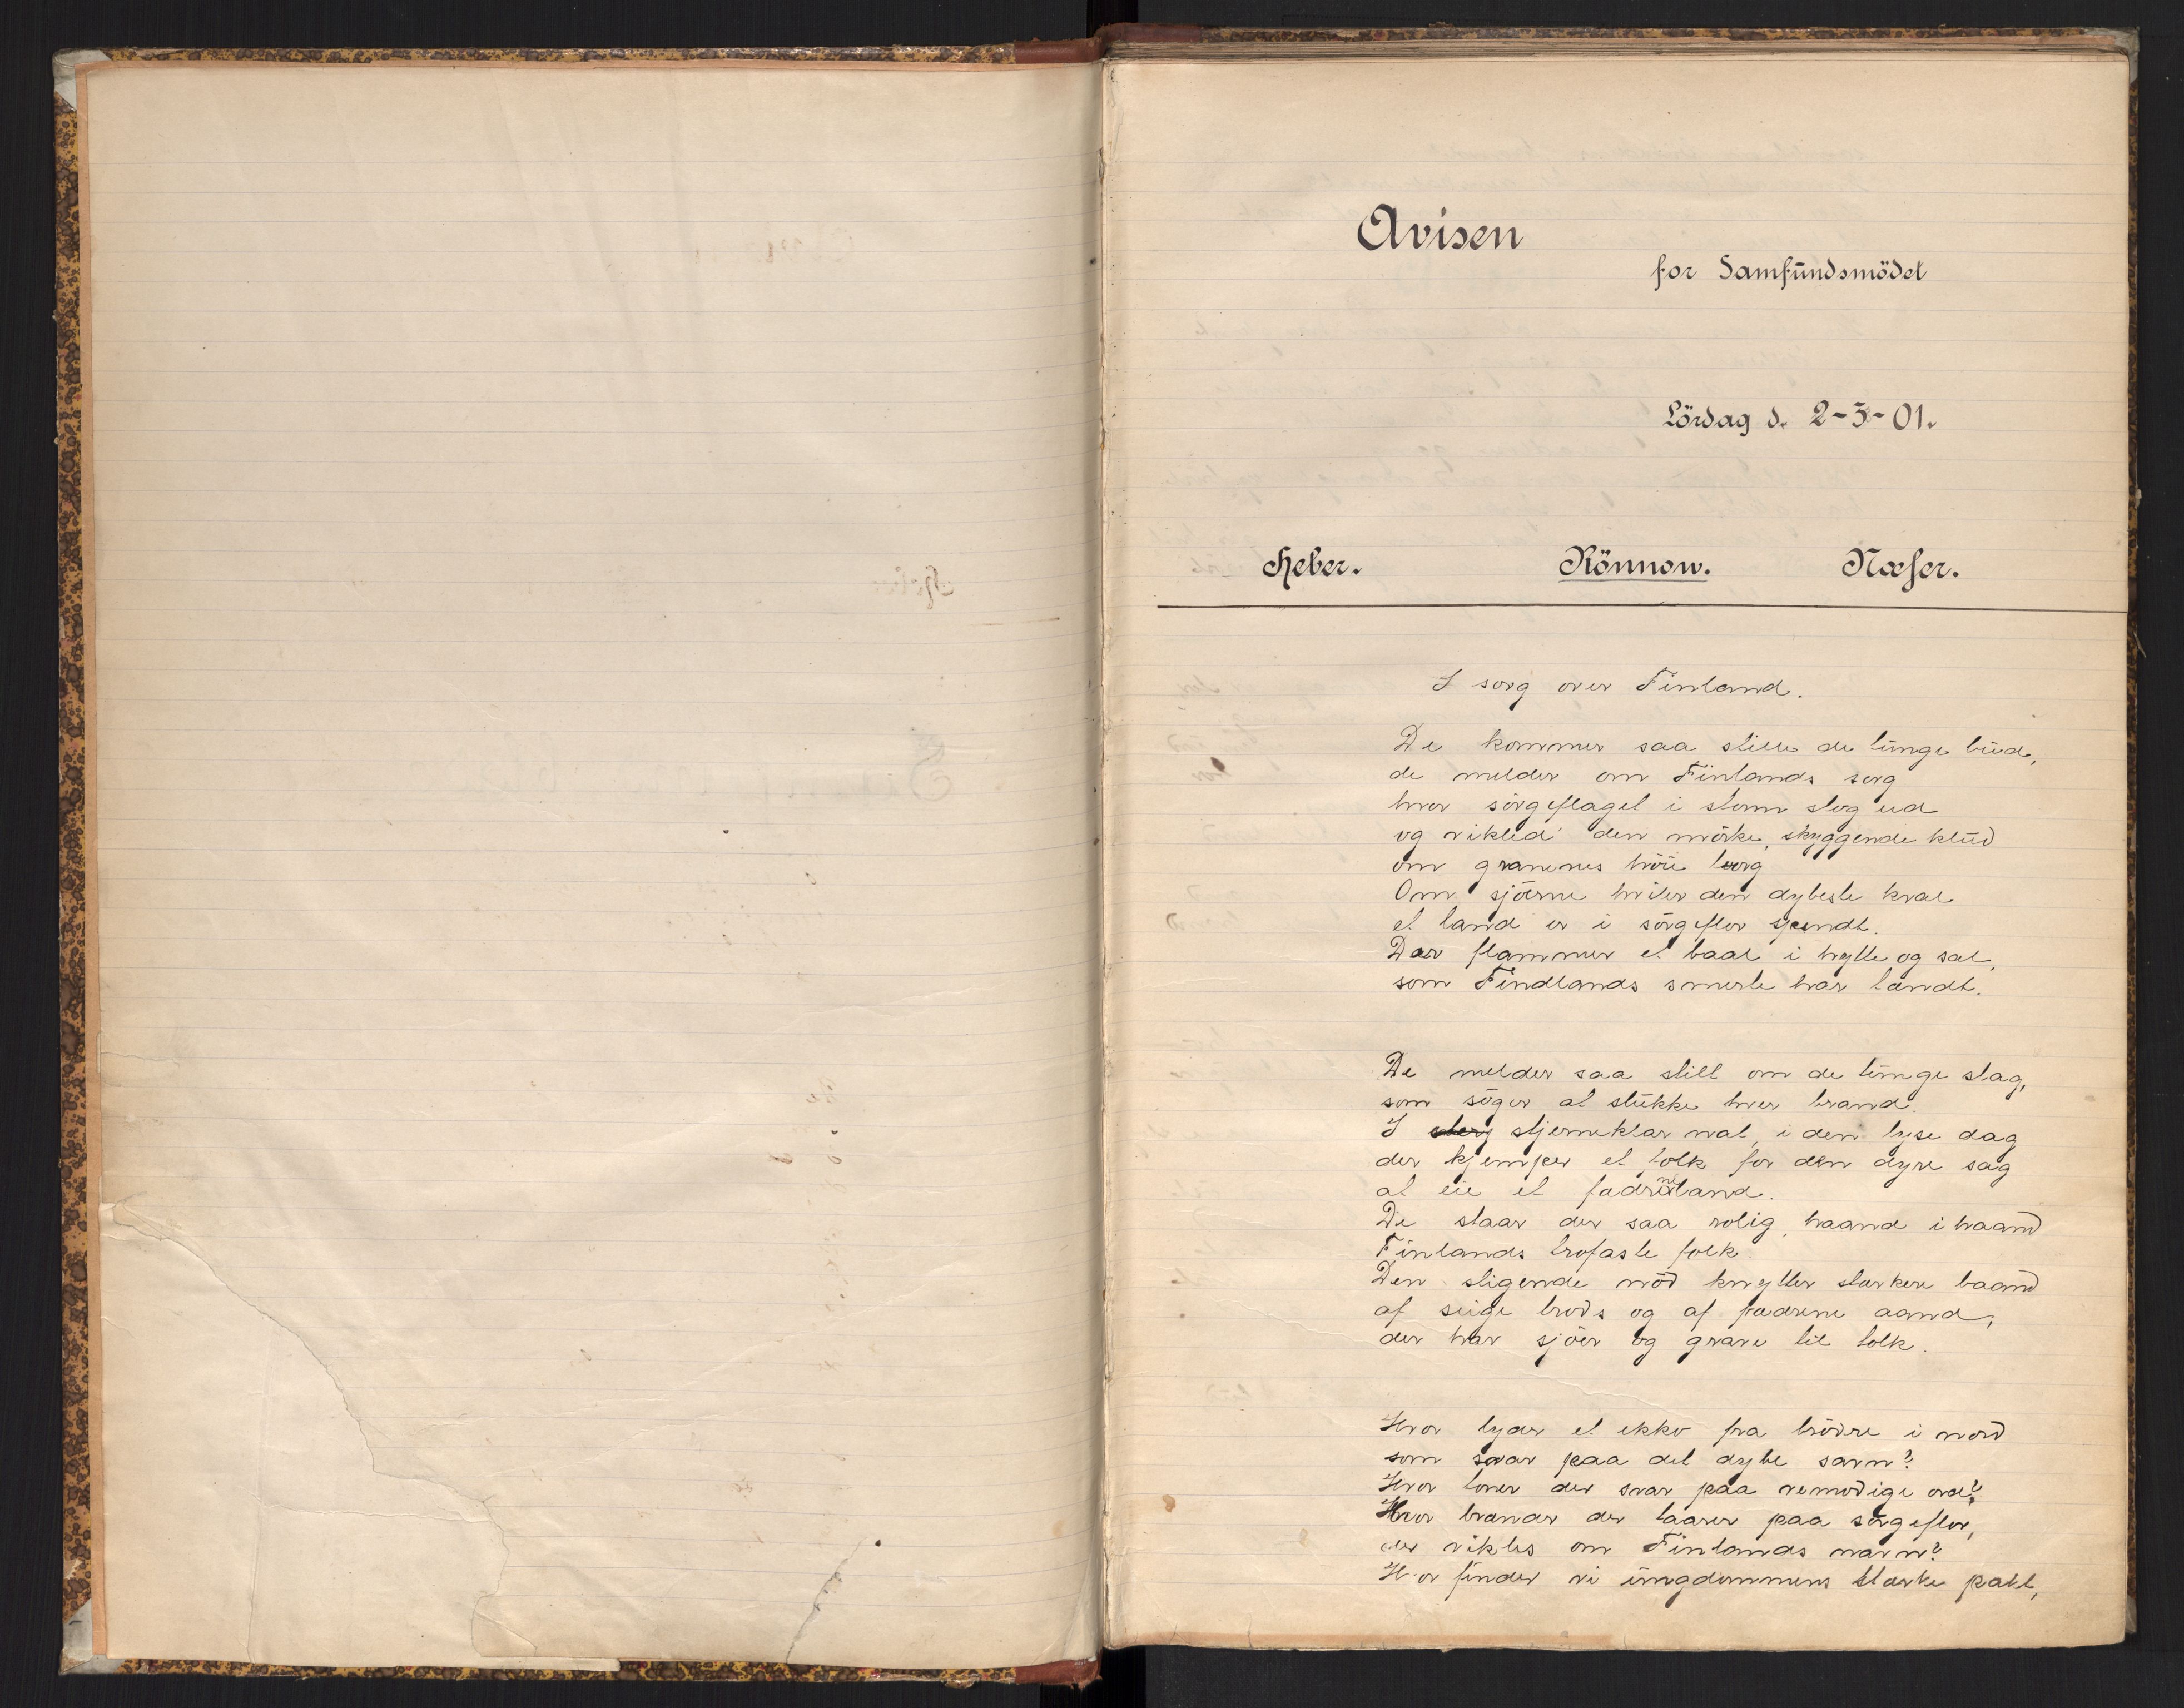 Avisen
for Samfundsmödet
Lördag d. 2-3-01.
Heber. Rönnow. Næser.
I sorg over Finland.
De kommer saa stille de tunge bud,
de melder om Finlands sorg
hvor sörgeflaget i storm slog ud
og vikled' den mörke, skyggende klud
om granenes höie borg
Om sjöerne hviler den dybeste kval
et land er i sörgeflor spendt.
Der flammer et baal i hytte og sal,
som Findlands smerte har tændt.
De melder saa stilt om de tunge slag,
som söger at slukke hver brand.
I stjerneklar nat, i den lyse dag
der kjemper et folk for den dyre sag
at eie et fædreneland.
De staar der saa rolig, haand i haand
Finlands trofaste folk
Den stigende nöd knytter stærkere baand
af seige trods og af fædrene aand,
der har sjöer og grave til tolk.
Hvor lyder et ekko fra brödre i nord
som svar paa det dybe savn?
Hvor toner der svar paa vemodige ord?
Hvor brænder der taarer paa sörgeflor,
der vikles om Finlands navn?
Hvor finder vi ungdommens stærke pakt,